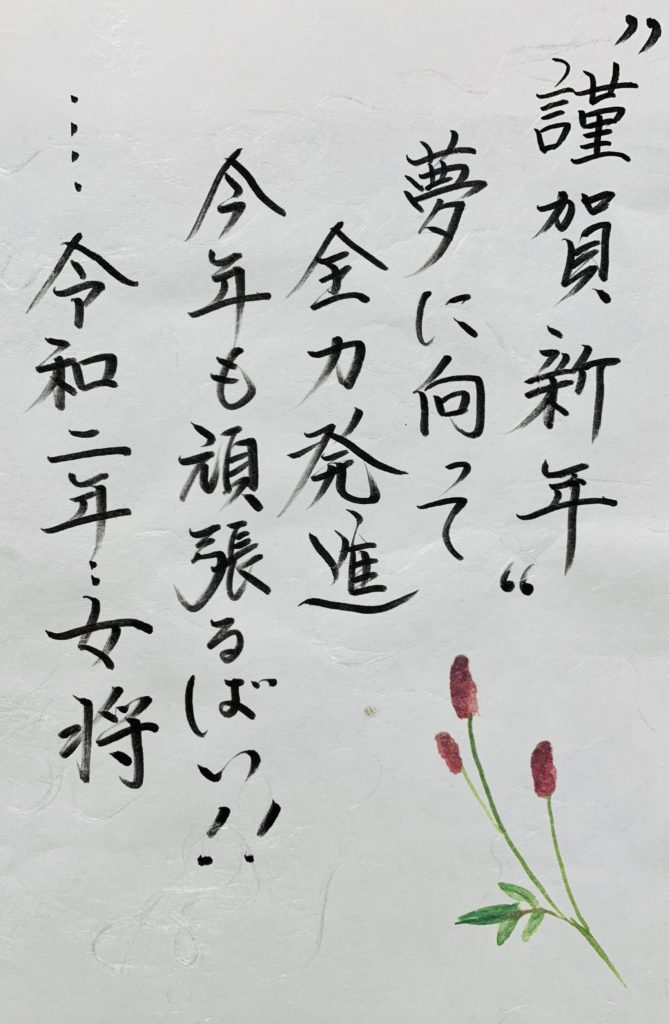 〃謹賀新年〃
夢に向って
全力発進
今年も頑張るばい!!
‥‥令和二年‥女将